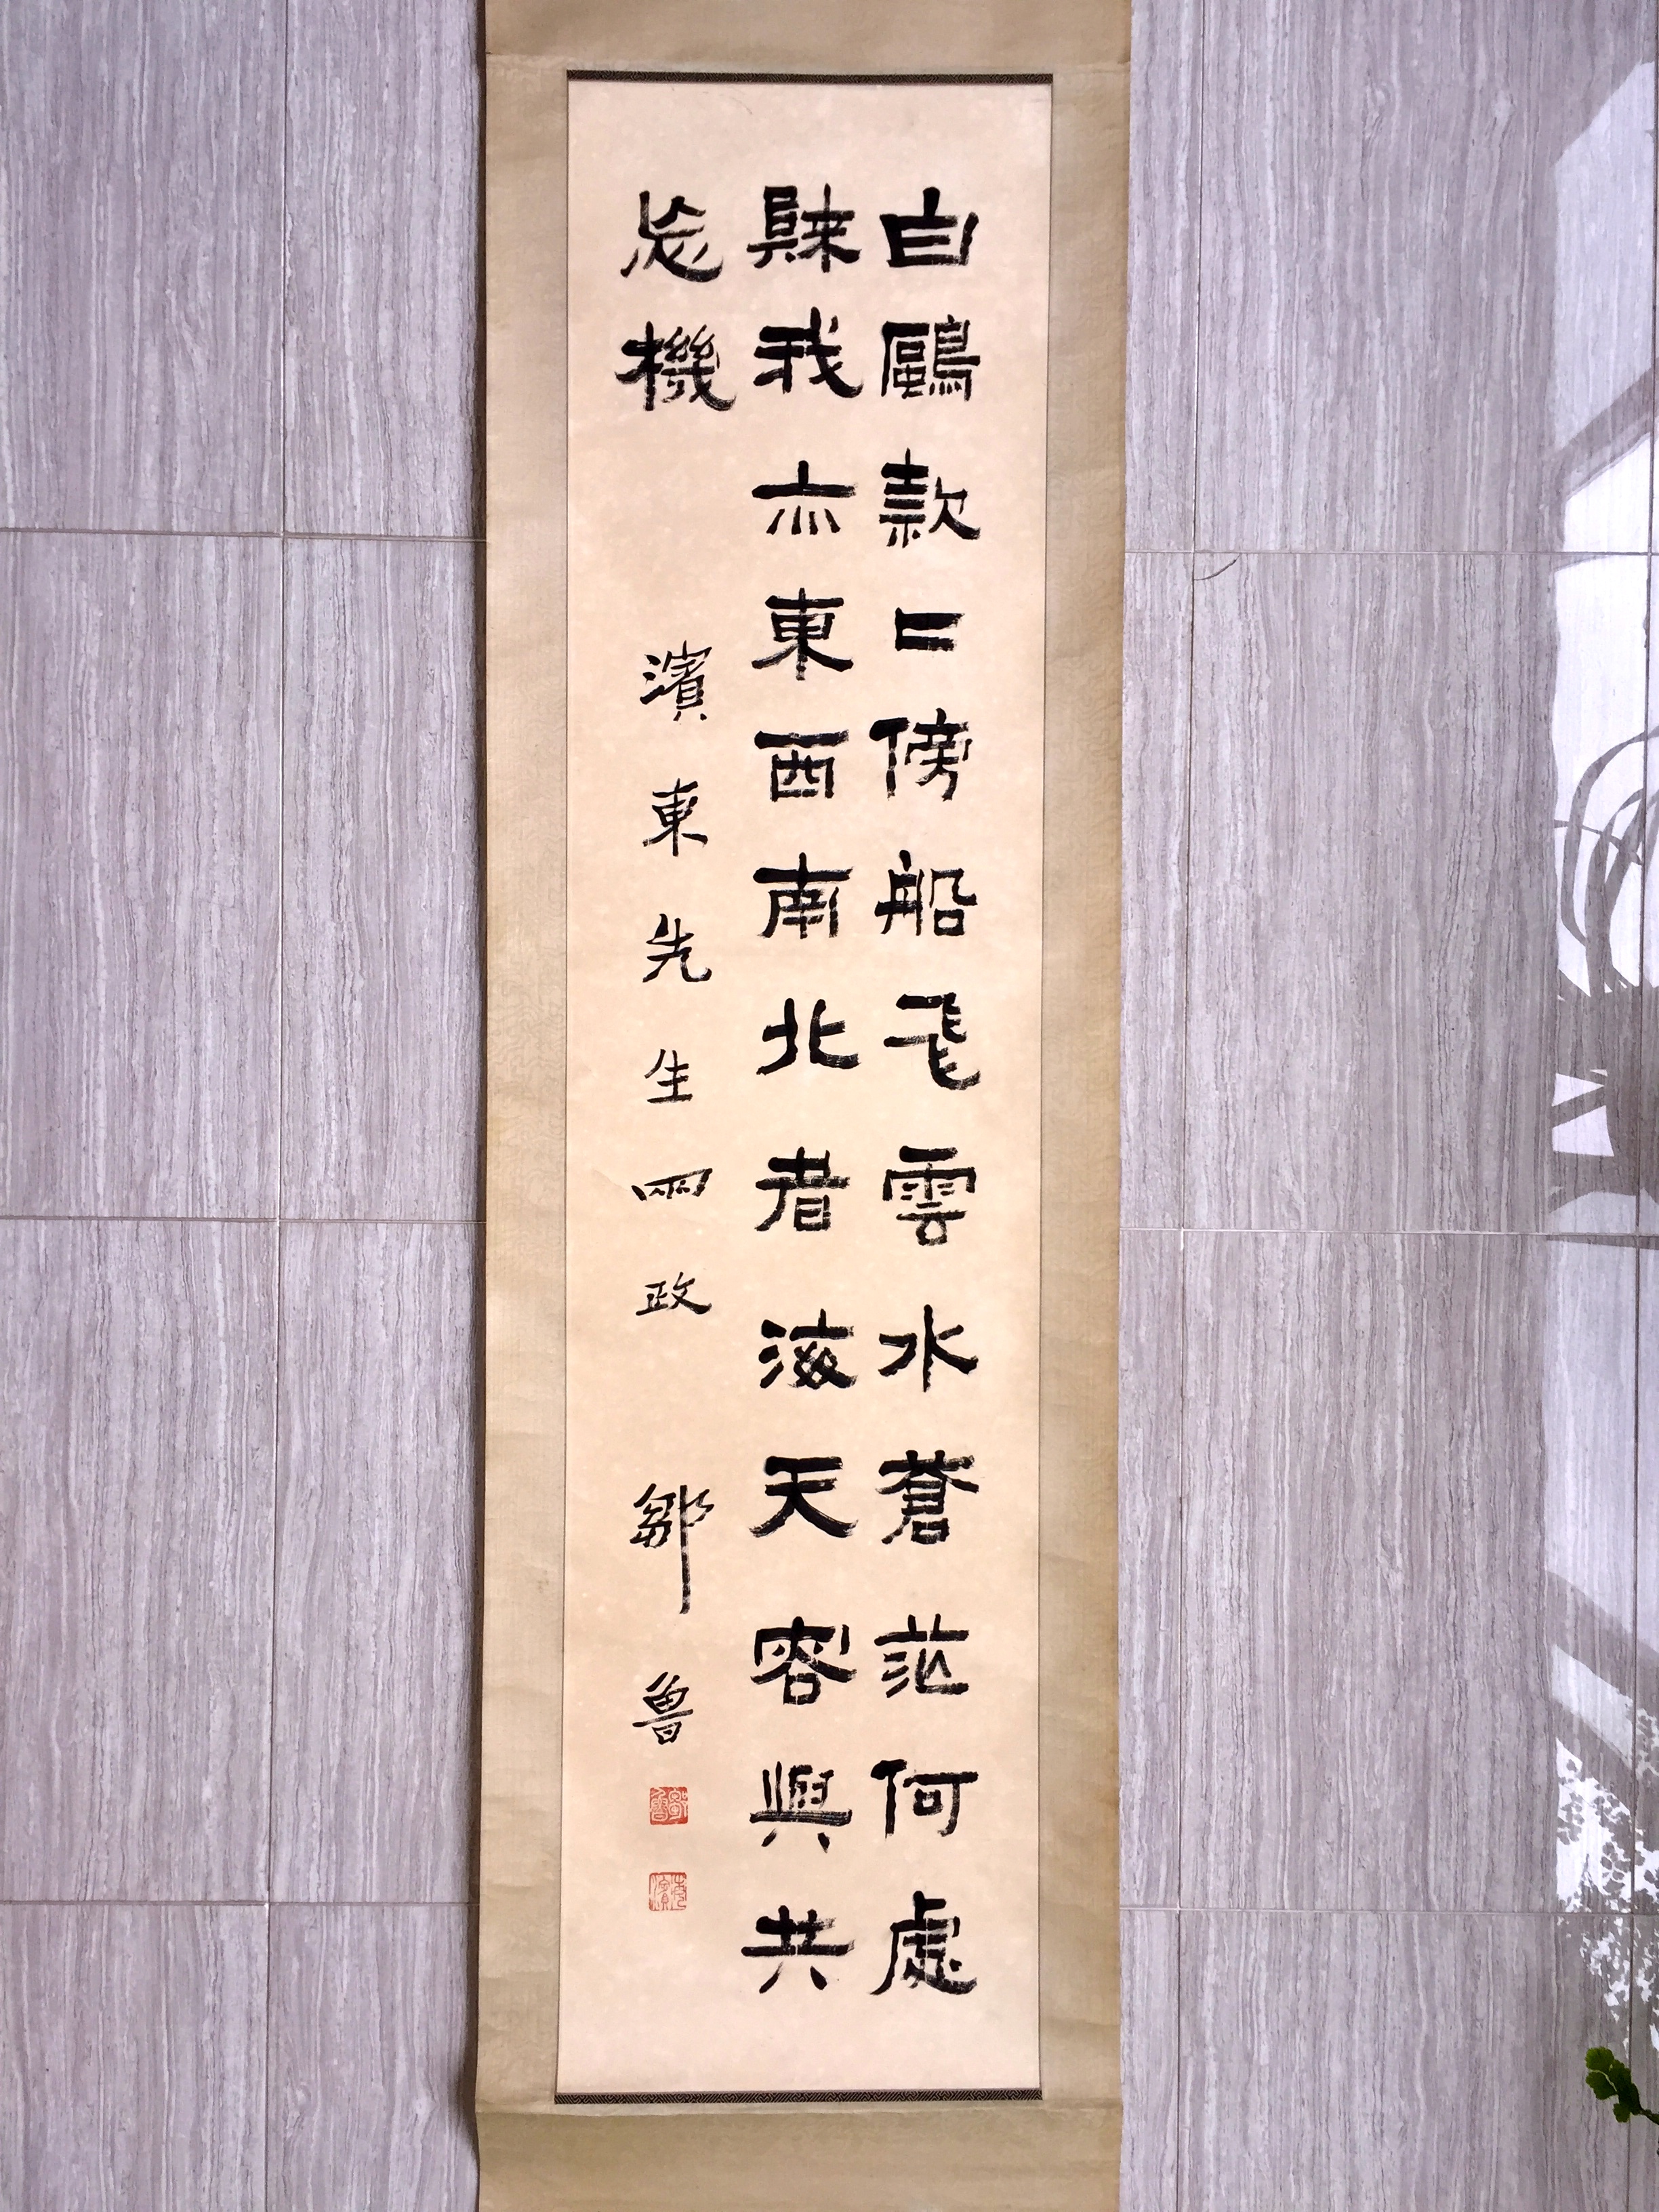 白鷗款々傍船飛雲水蒼茫何處
歸我亦東西南北者海天容與共
忘機
濱東先生兩政 鄒魯
鄒魯
海濱